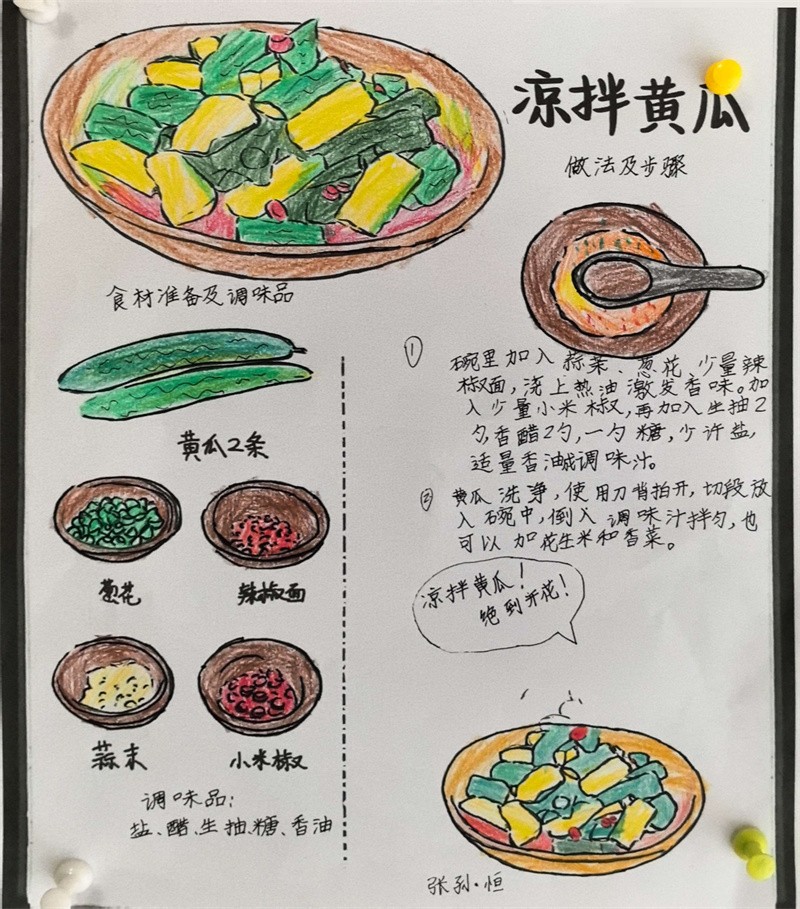 凉拌黄瓜
做法及步骤
食材准备及调味品
黄瓜2条
葱花
辣椒面
蒜末
小米椒
调味品:
盐、醋、生抽、糖、香油
① 碗里加入蒜菜、葱花、少量辣
椒面,浇上热油激发香味。加
入少量小米椒,再加入生抽2
勺,香醋2勺,一勺糖,少许盐,
适量香油成调味汁。
② 黄瓜洗净,使用刀背拍开,切段放
入碗中,倒入调味汁拌匀,也
可以加花生米和香菜。
凉拌黄瓜!
绝到开花!
张孙·恒